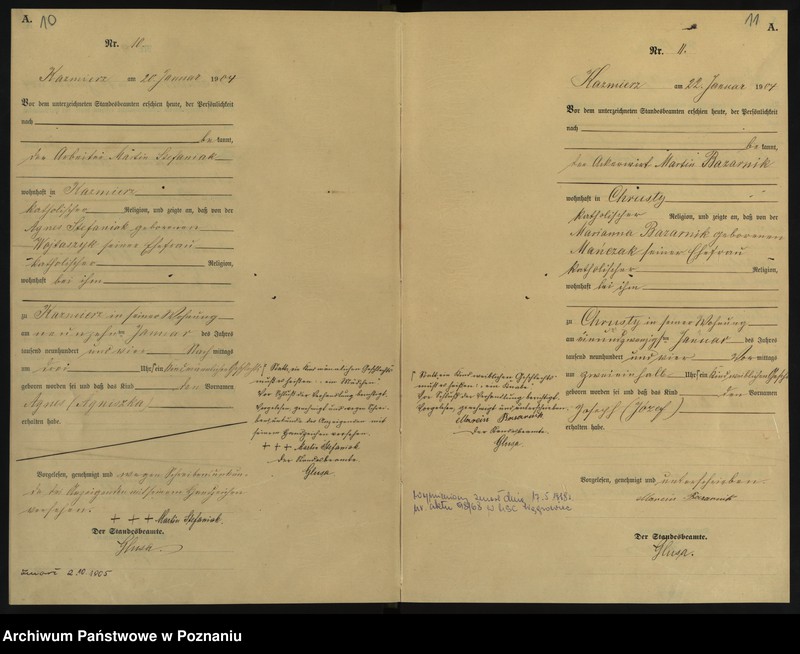 A. 10
Nr. 10.
Kazmierz am 20 Januar 1904
Vor dem unterzeichneten Standesbeamten erschien heute, der Persönlichkeit
nach
be kannt,
der Arbeiter Martin Stefaniak
wohnhaft in Kazmierz
katholischer Religion, und zeigte an, daß von der
Agnes Stefaniak geborenen
Wojtaszyk seiner Ehefrau
katholischer Religion,
wohnhaft bei ihm
zu Kazmierz in seiner Wohnung
am neunzehnten Januar des Jahres
tausend neunhundert und vier Nachmittags
um drei Uhr ein Kind männlichen Geschlechts
geboren worden sei und daß das Kind den Vornamen
Agnes (Agnieszka)
erhalten habe.
Vorgelesen, genehmigt und wegen Schreibensunkun-
de des Anzeigenden mit seinem Handzeichen
versehen.
+ + + Martin Stefaniak.
Der Standesbeamte.
Glusa.
2.10.1905
Statt „ein Kind männlichen Geschlechts“
muß es heißen: „ein Mädchen“
Vor Schluß der Verhandlung berichtigt.
Vorgelesen genehmigt und wegen Schrei-
bensunkunde des Anzeigenden mit
seinem Handzeichen versehen.
+ + + Martin Stefaniak
Der Standesbeamte
Glusa
11 A.
Nr. 11.
Kazmierz am 22. Januar 1904
Vor dem unterzeichneten Standesbeamten erschien heute, der Persönlichkeit
nach
be kannt,
der Ackerwirt Martin Bazarnik
wohnhaft in Chrusty
katholischer Religion, und zeigte an, daß von der
Marianna Bazarnik geborenen
Mańczak seiner Ehefrau
katholischer Religion,
wohnhaft bei ihm
zu Chrusty in seiner Wohnung
am einundzwanzigsten Januar des Jahres
tausend neunhundert und vier mittags
um zweieinhalb Uhr ein Kind weiblichen Geschlechts
geboren worden sei und daß das Kind den Vornamen
Joseph (Józef)
erhalten habe.
Statt „ein Kind weiblichen Geschlechts“
muß es heißen: „ein Knabe“
Vor Schluß der Verhandlung berichtigt.
Vorgelesen, genehmigt und unterschrieben.
Marcin Bazarnik
Der Standesbeamte
Glusa
Vorgelesen, genehmigt und unterschrieben.
Marcin Bazarnik
Der Standesbeamte.
Glusa.
nr. aktu 98/68 w USC Wągrowiec
Archiwum Państwowe w Poznaniu